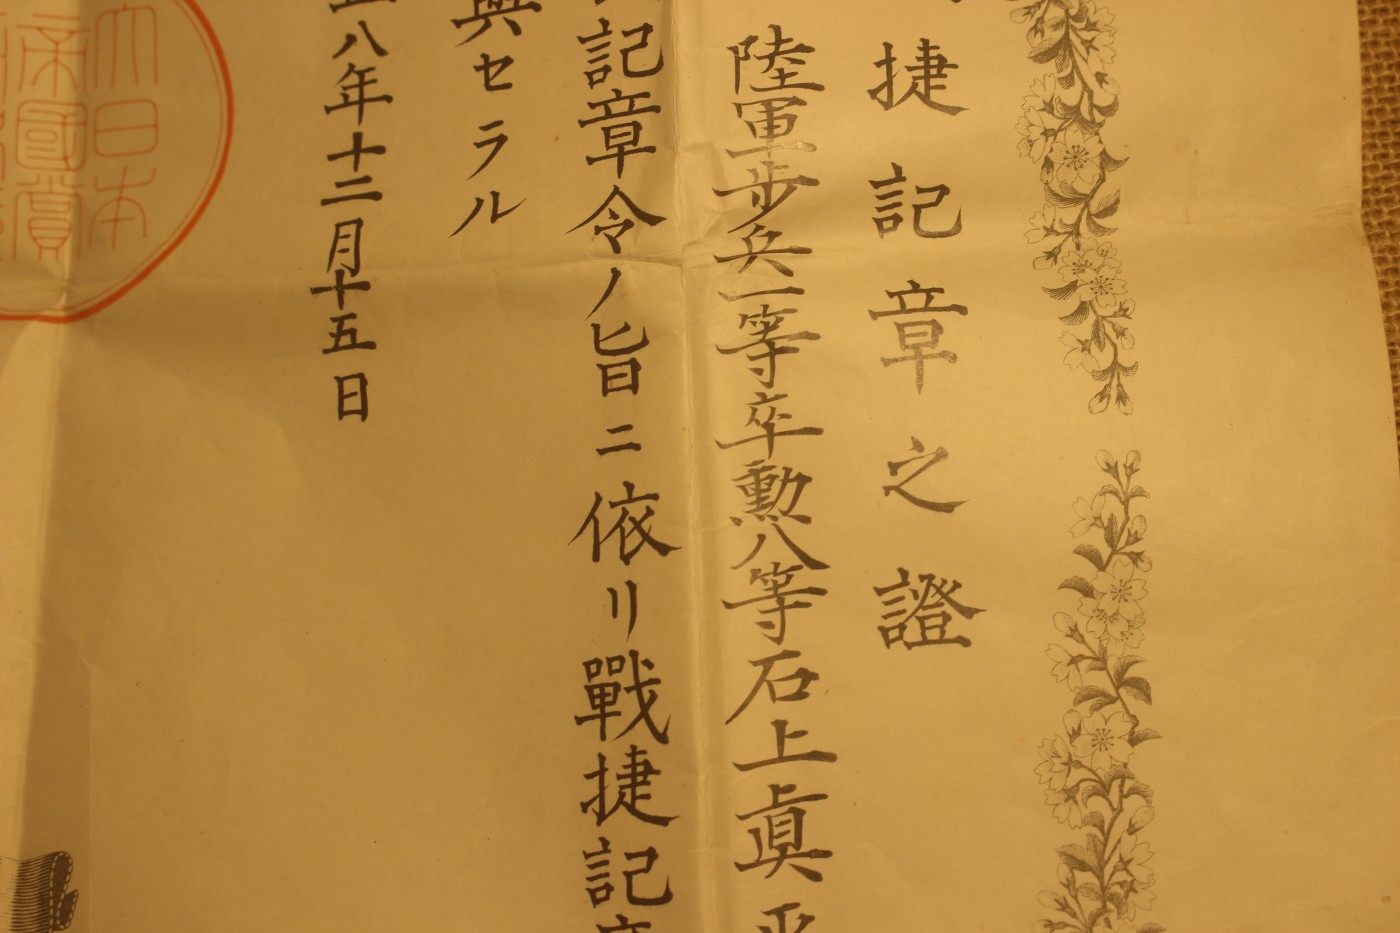 捷記章之證
陸軍歩兵一等卒勲八等石上眞平
記章令ノ旨ニ依リ戰捷記章
與セラル
正八年十二月十五日
大日本
帝國賞